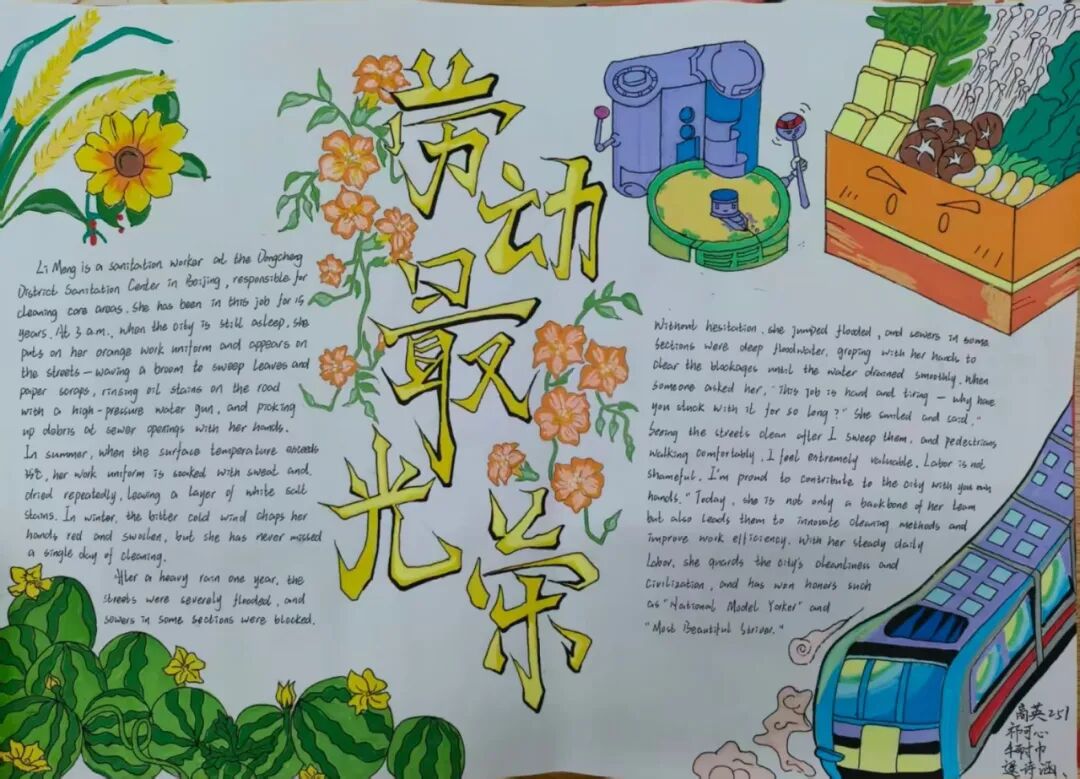 劳动最光荣
Li Meng is a sanitation worker at the Dongcheng
District Sanitation Center in Beijing, responsible for
cleaning core areas. She has been in this job for 15
years. At 3 a.m., when the city is still asleep, she
puts on her orange work uniform and appears on
the streets — waving a broom to sweep leaves and
paper scraps, rinsing oil stains on the road
with a high-pressure water gun, and picking
up debris at sewer openings with her hands.
In summer, when the surface temperature exceeds
35℃, her work uniform is soaked with sweat and
dried repeatedly, leaving a layer of white salt
stains. In winter, the bitter cold wind chaps her
hands red and swollen, but she has never missed
a single day of cleaning.
After a heavy rain one year, the
streets were severely flooded, and
sewers in some sections were blocked.
Without hesitation, she jumped flooded, and sewers in some
sections were deep floodwater, groping with her hands to
clear the blockages until the water drained smoothly. When
someone asked her, "This job is hard and tiring — why have
you stuck with it for so long?" She smiled and said, "
Seeing the streets clean after I sweep them, and pedestrians
walking comfortably, I feel extremely valuable. Labor is not
shameful. I'm proud to contribute to the city with you own
hands." Today, she is not only a backbone of her team
but also leads them to innovate cleaning methods and
improve work efficiency. With her steady daily
labor, she guards the city's cleanliness and
civilization, and has won honors such
as "National Model Yorker" and
"Most Beautiful Striver."
商英251
祁可心
诗涵